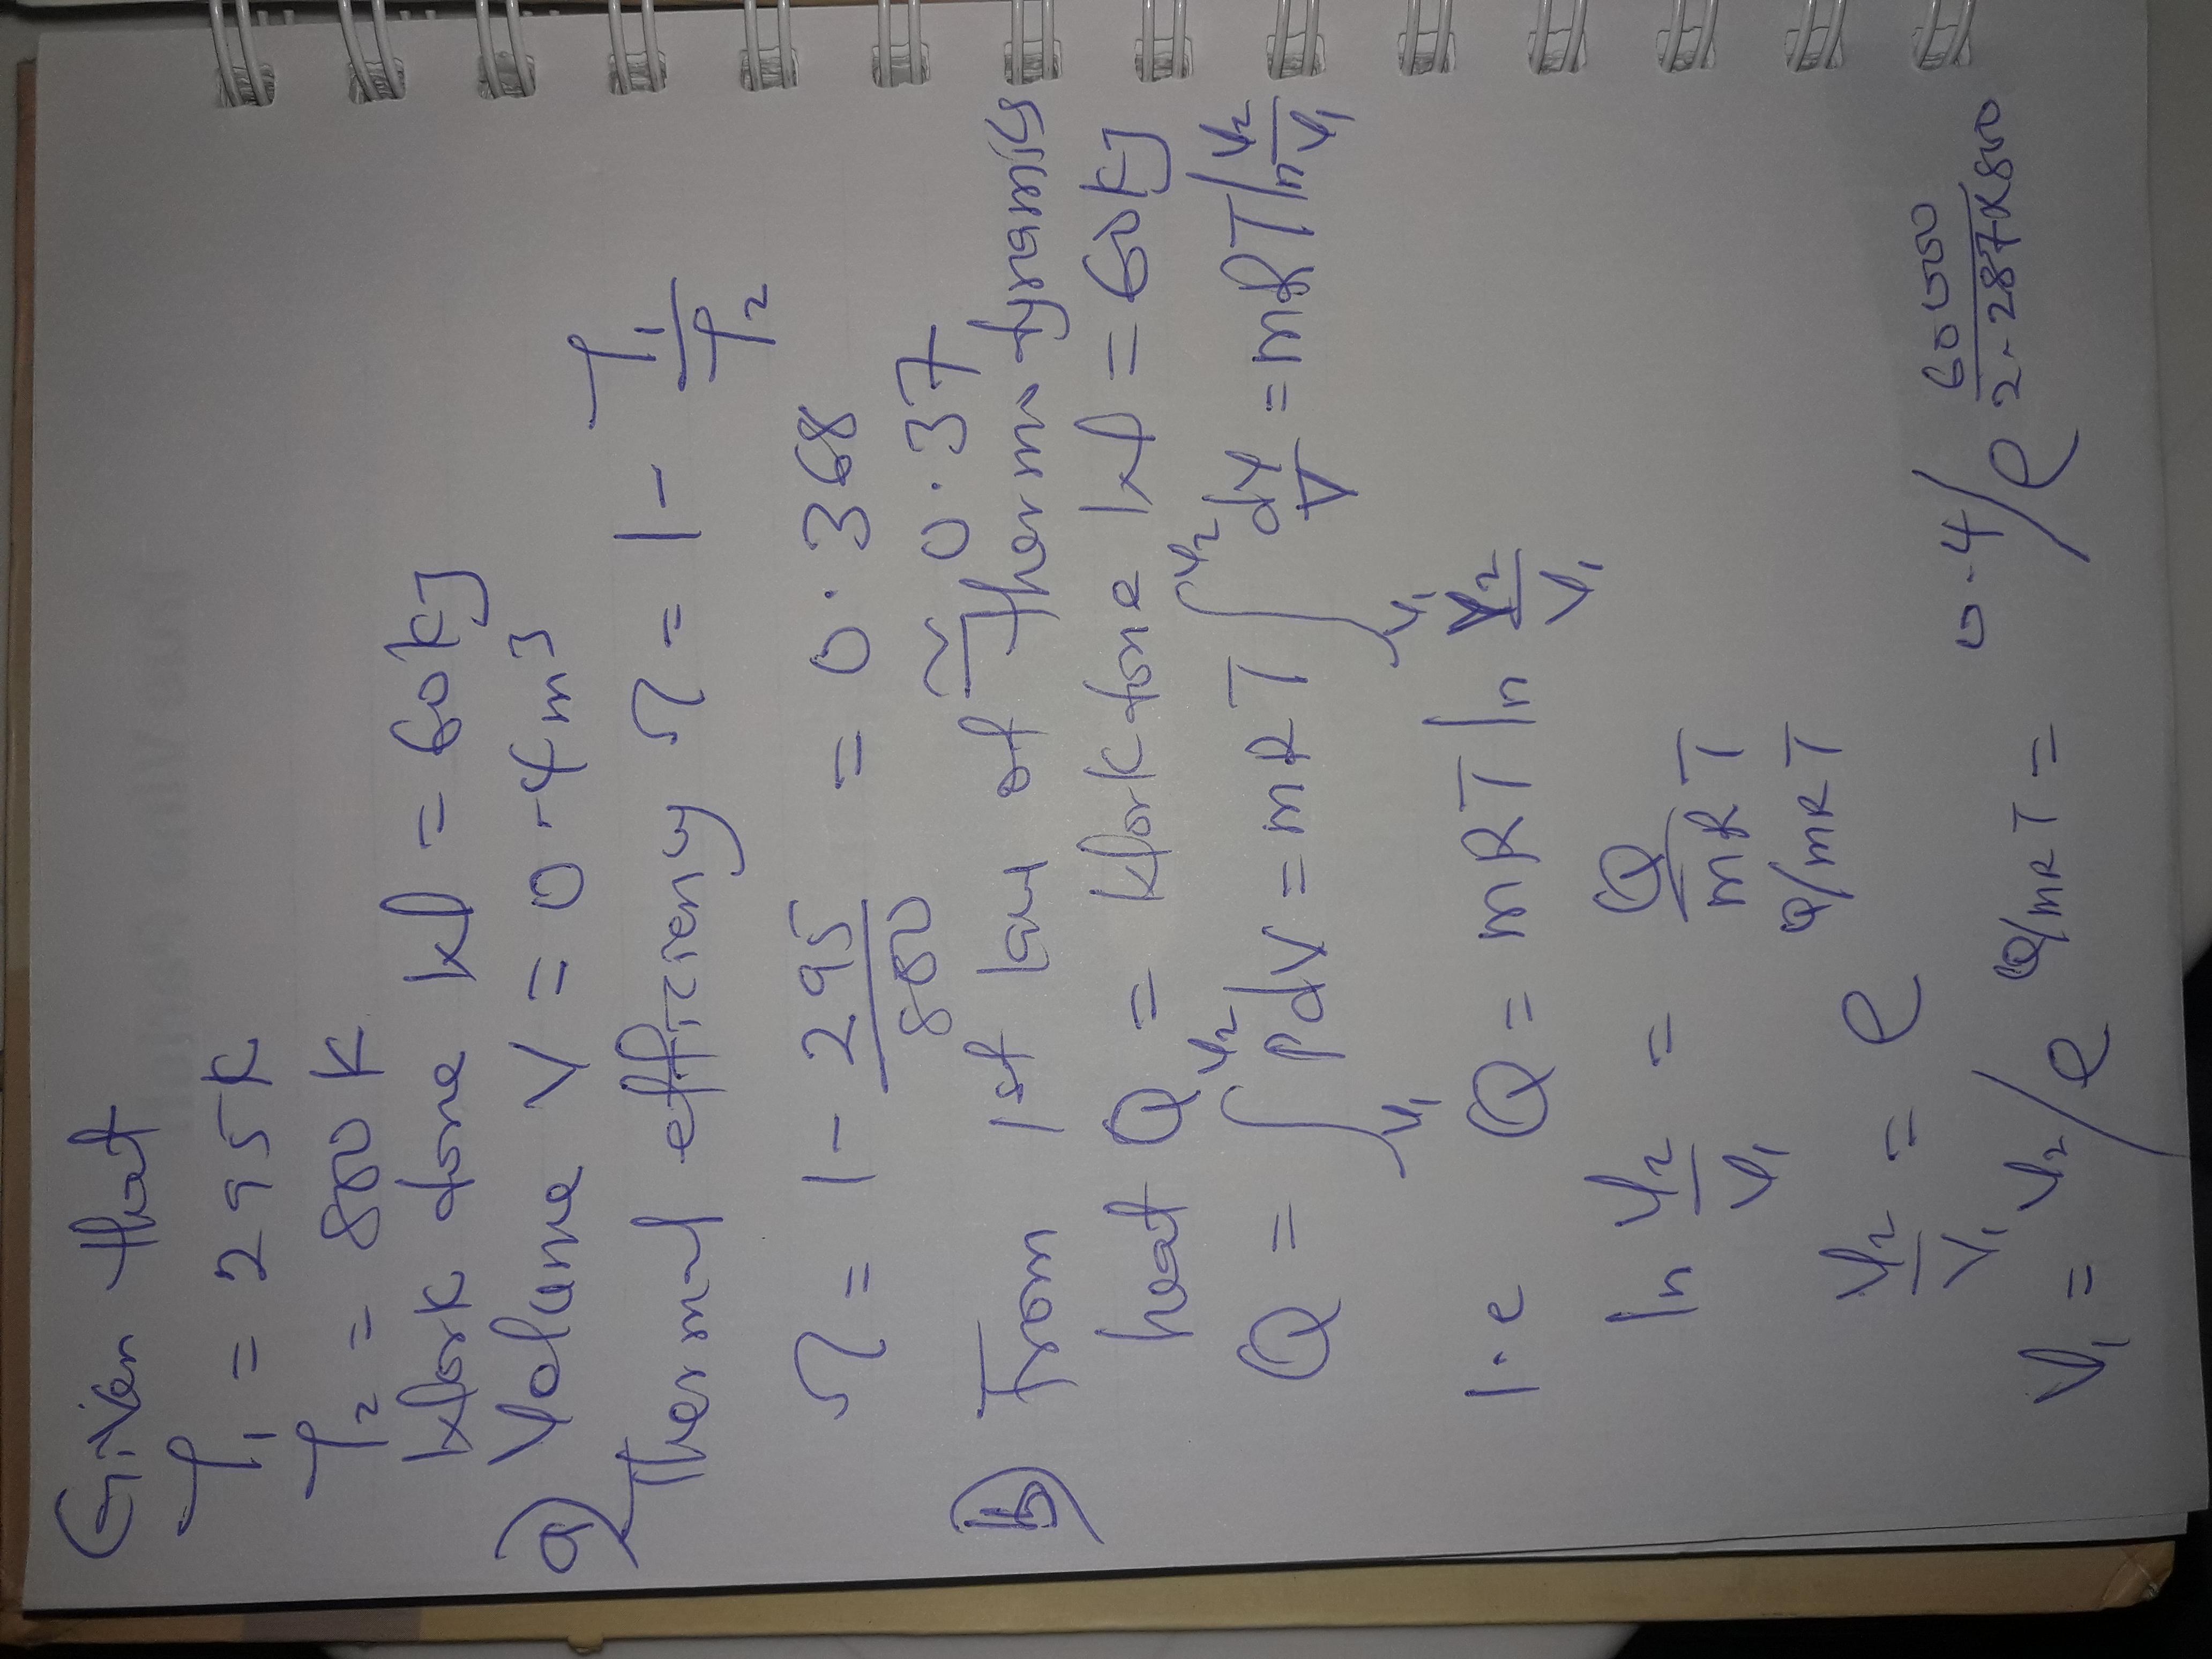 Given that
T₁ = 295K
T₂ = 800K
Work done W = 60kJ
Volume V = 0.4m³
a) Thermal efficiency η = 1 - T₁/T₂
η = 1 - 295/800 = 0.368
≈ 0.37
b) From 1st law of Thermodynamics
heat Q = Work done W = 60kJ
Q = ∫V₁V₂ PdV = mRT ∫V₁V₂ dV/V = mRT ln V₂/V₁
i.e Q = mRT ln V₂/V₁
ln V₂/V₁ = Q/mRT
V₂/V₁ = e^Q/mRT
V₁ = V₂/e^Q/mRT = 0.4/e^60000/2.287×800